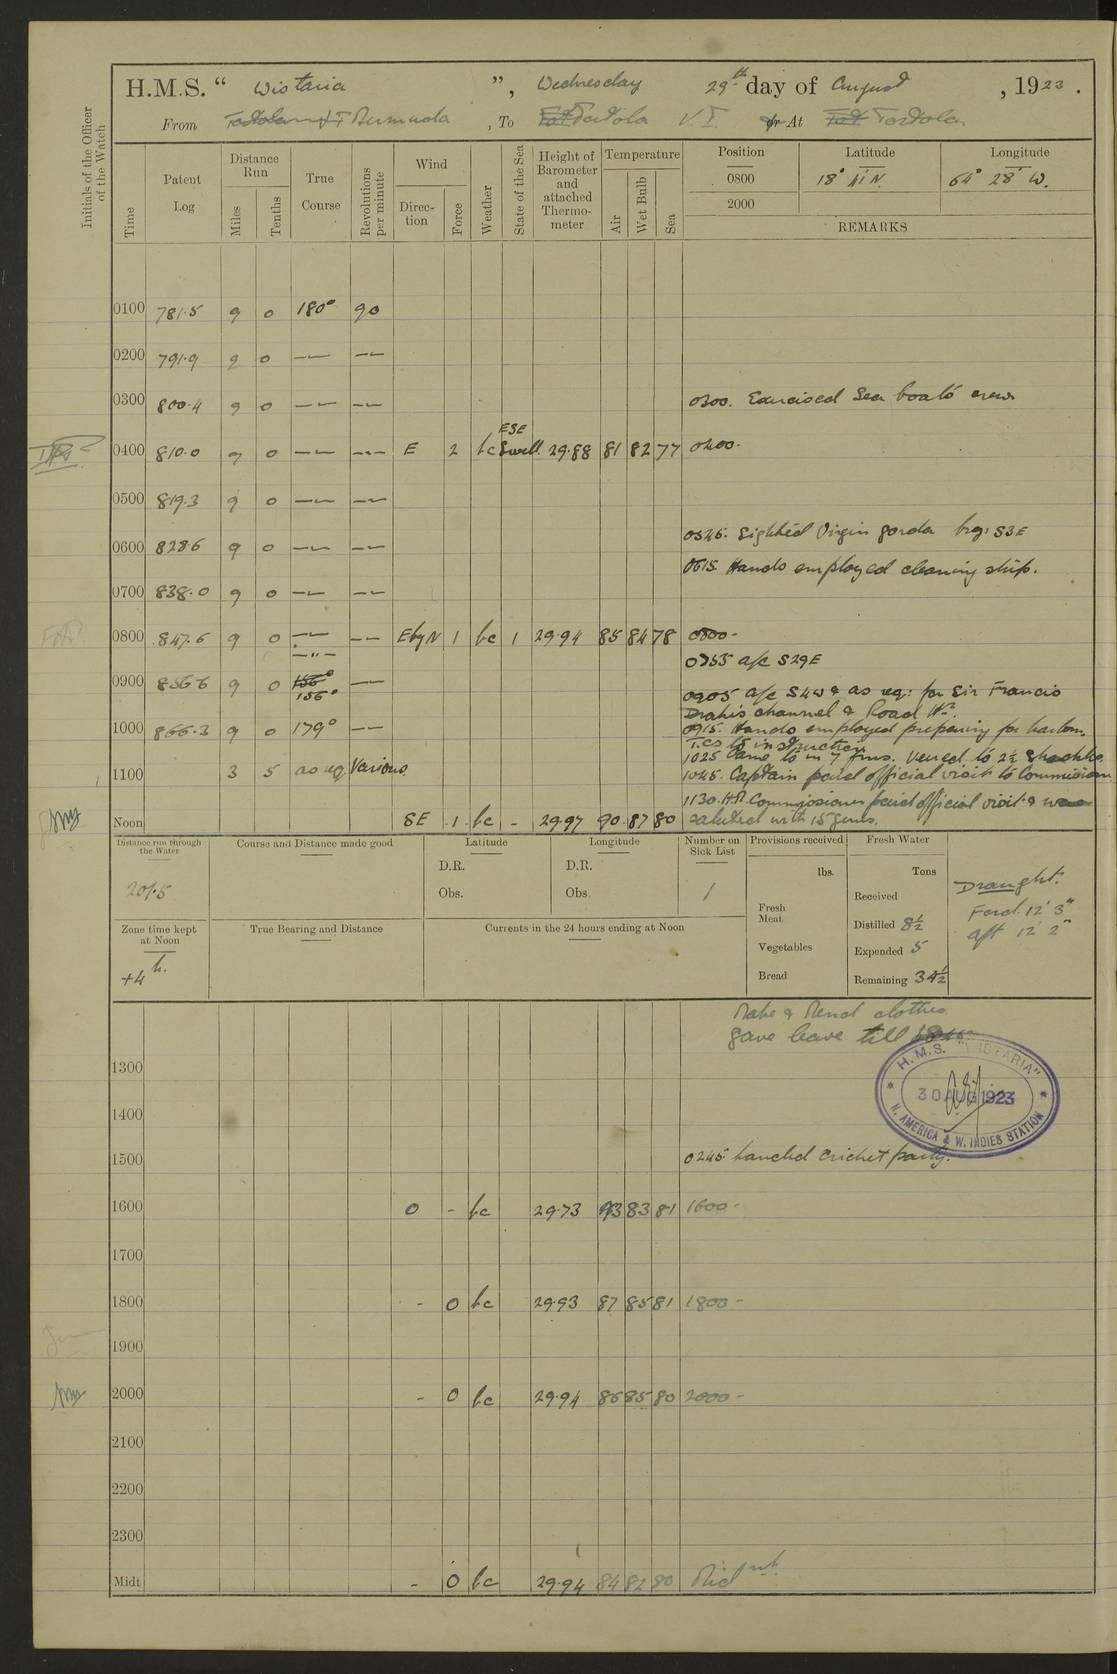 H.M.S. “ Wistaria ”, Wednesday 29th day of August, 1923.
From Bermuda, To Tortola V.I. or At Tortola
Initials of the Officer of the Watch
Time
Patent Log
Distance Run
Miles
Tenths
True Course
Revolutions per minute
Wind
Direction
Force
Weather
State of the Sea
Height of Barometer and attached Thermometer
Temperature
Air
Wet Bulb
Sea
Position
Latitude
Longitude
0800 18° 41' N. 64° 28' W.
2000
REMARKS
0100 781.5 9 0 180° 90
0200 791.9 9 0 —〃— —〃—
0300 800.4 9 0 —〃— —〃— 0300. Exercised Sea boat's crew
0400 810.0 9 0 —〃— —〃— E 2 bc ESE Swell 29.88 81 82 77 0400.
0500 819.3 9 0 —〃— —〃—
0545. Sighted Virgin gorda brg: S3E
0600 828.6 9 0 —〃— —〃—
0615. Hands employed cleaning ship.
0700 838.0 9 0 —〃— —〃—
0800 847.6 9 0 —〃— —〃— E by N 1 bc 1 29.94 85 84 78 0800 -
—〃—
0755 a/c S29E
0900 856.6 9 0 156° 156° —〃—
0905 a/c S4W & as req: for Sir Francis
Drake's channel & Road Hr.
1000 866.3 9 0 179° —〃— 0915. Hands employed preparing for harbour.
T.Cs to instruction
1025 Came to in 7 fms. Veered to 2½ Shackles
1100 3 5 as req Various 1045. Captain paid official visit to Commissioner
1130. H.H. Commissioner paid official visit & was
Noon SE 1 bc - 29.97 90 87 80 saluted with 15 guns.
Distance run through the Water
201.5
Course and Distance made good
Latitude
D.R.
Obs.
Longitude
D.R.
Obs.
Number on Sick List
1
Provisions received
lbs.
Fresh Meat
Vegetables
Bread
Fresh Water
Tons
Received
Distilled 8½
Expended 5
Remaining 34½
Draught.
Ford. 12' 3"
aft 12' 2"
Zone time kept at Noon
+4 h.
True Bearing and Distance
Currents in the 24 hours ending at Noon
Make & Mend clothes.
Gave leave till
H.M.S. "WISTARIA"
30 AUG 1923
N. AMERICA & W. INDIES STATION
1300
1400
1500 0245 Landed cricket party.
1600 0 - bc 29.73 93 83 81 1600 -
1700
1800 - 0 bc 29.93 87 85 81 1800 -
1900
2000 - 0 bc 29.94 86 85 80 2000 -
2100
2200
2300
Midt - 0 bc 29.94 84 82 80 Midnt